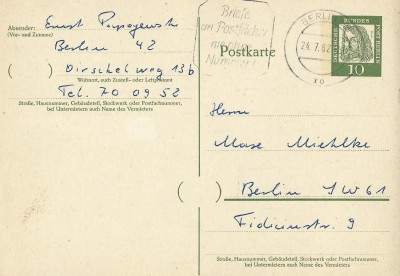 Absender: Ernst Papajewski
(Vor- und Zuname)
Berlin 42
( ) Dirschelweg 13b
Wohnort, auch Zustell- oder Leitpostamt
Tel. 70 09 52
Straße, Hausnummer, Gebäudeteil, Stockwerk oder Postfachnummer,
bei Untermietern auch Name des Vermieters
Briefe
an Postfächer
Nummer!
BERLIN
24.7.62
Postkarte
DEUTSCHE BUNDESPOST
10
Herrn
Max Miehlke
( ) Berlin SW 61
Fidicinstr. 9
Straße, Hausnummer, Gebäudeteil, Stockwerk oder Postfachnummer,
bei Untermietern auch Name des Vermieters